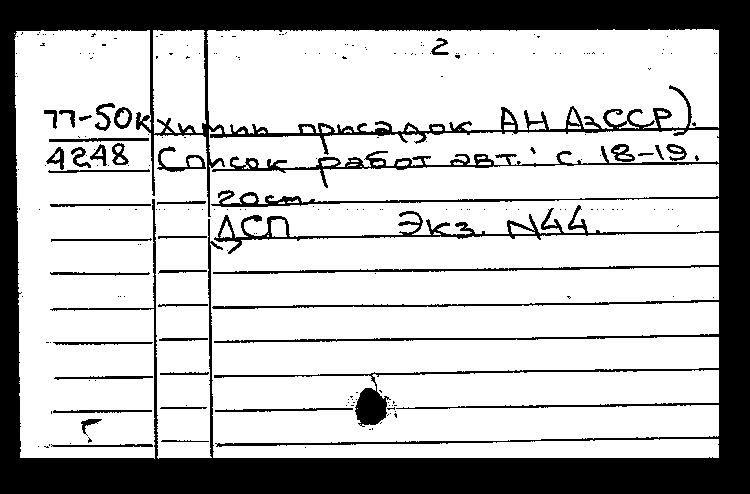 2.
77-50к химии присадок АН АзССР).
4248 Список работ авт.: с. 18-19.
20 см.
ДСП Экз. N44.